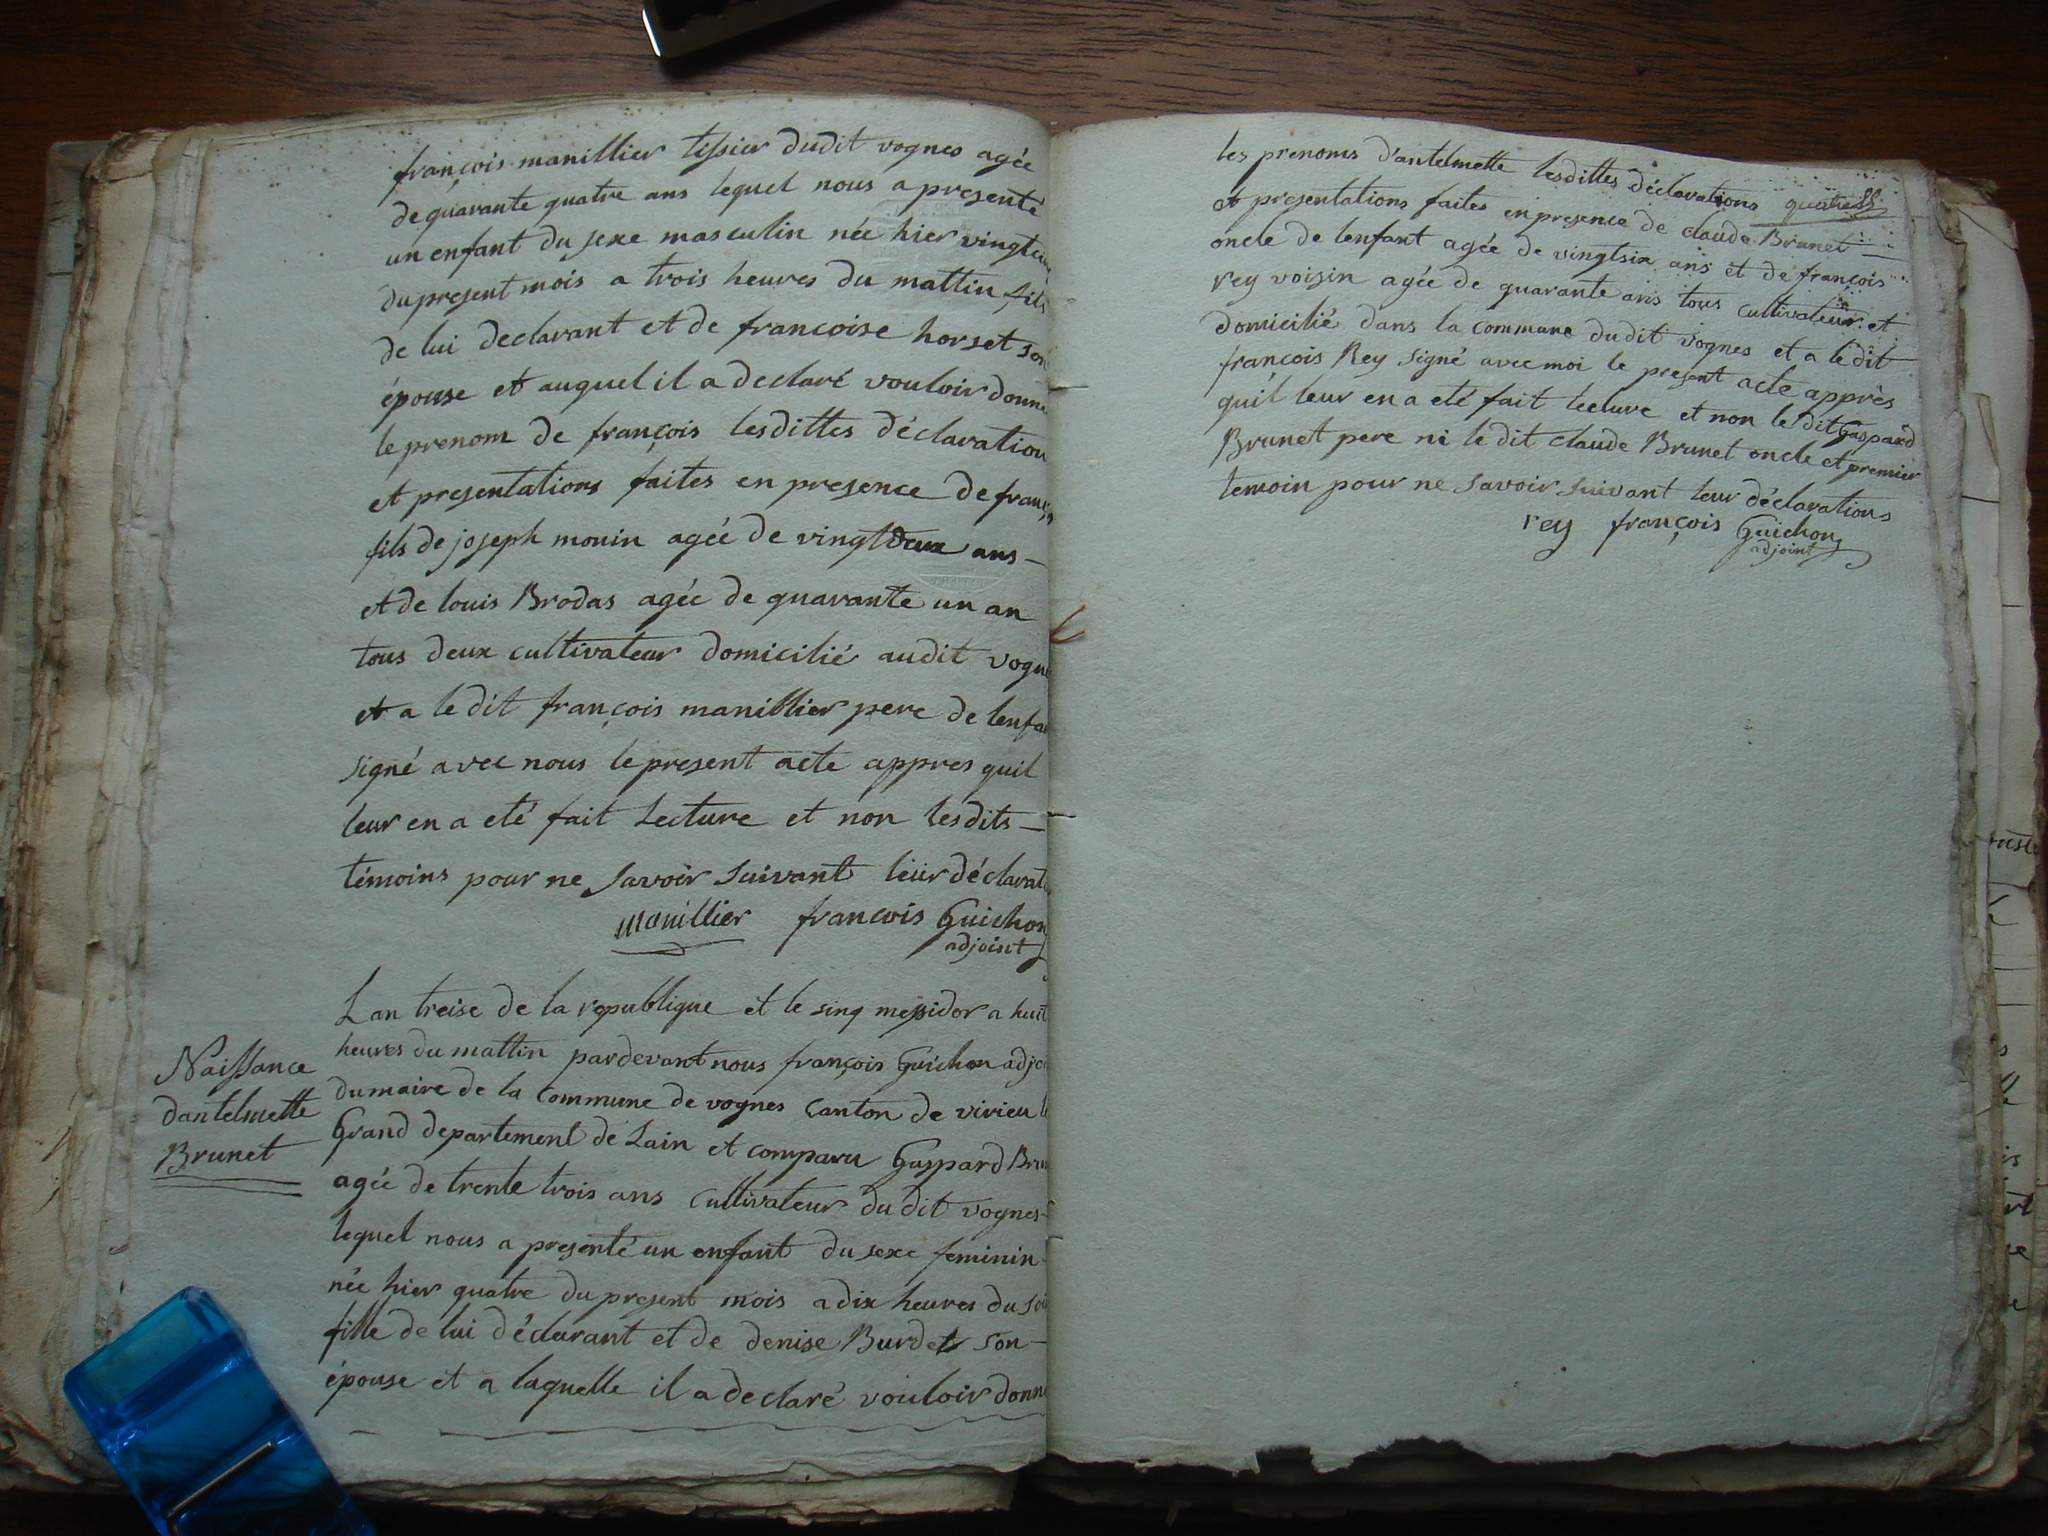 françois manillier tissier dudit vognes agée
de quarante quatre ans lequel nous a presenté
un enfant du sexe masculin née hier
du present mois a trois heures du mattin fils
de lui declarant et de francoise horset son
épouse et auquel il a declaré vouloir donne
le prenom de françois lesdittes déclaration
et presentations faites en presence de franç
fils de joseph monin agée de vingtdeux ans —
et de louis Brodas agée de quarante un an
tous deux cultivateur domicilié audit vogne
et a le dit françois manillier pere de lenfa
signé avec nous le present acte appres quil
leur en a eté fait Lecture et non lesdits —
témoins pour ne savoir suivant leur déclarat
manillier françois Guichon
adjoint
Naissance
dantelmette
Brunet
Lan treise de la republique et le sinq messidor a huit
heures du mattin pardevant nous françois Guichon adjo
du maire de la Commune de vognes Canton de virieu le
Grand departement de Lain et comparu Gaspard Brun
agée de trente trois ans cultivateur du dit vognes
lequel nous a presenté un enfant du sexe feminin
née hier quatre du present mois a dix heures du soi
fille de lui déclarant et de denise Burdet son —
épouse et a laquelle il a declaré vouloir donne
les prenoms d'antelmette lesdittes déclarations
et presentations faites en presence de claude Brunet
oncle de lenfant agée de vingtsix ans et de françois
rey voisin agée de quarante ans tous cultivateur et
domicilié dans la commune dudit vognes et a le dit
françois Rey signé avec moi le present acte apprès
quil leur en a eté fait lecture et non le dit Gaspard
Brunet pere ni le dit claude Brunet oncle et premier
temoin pour ne savoir suivant leur déclarations
rey françois Guichon
adjoint